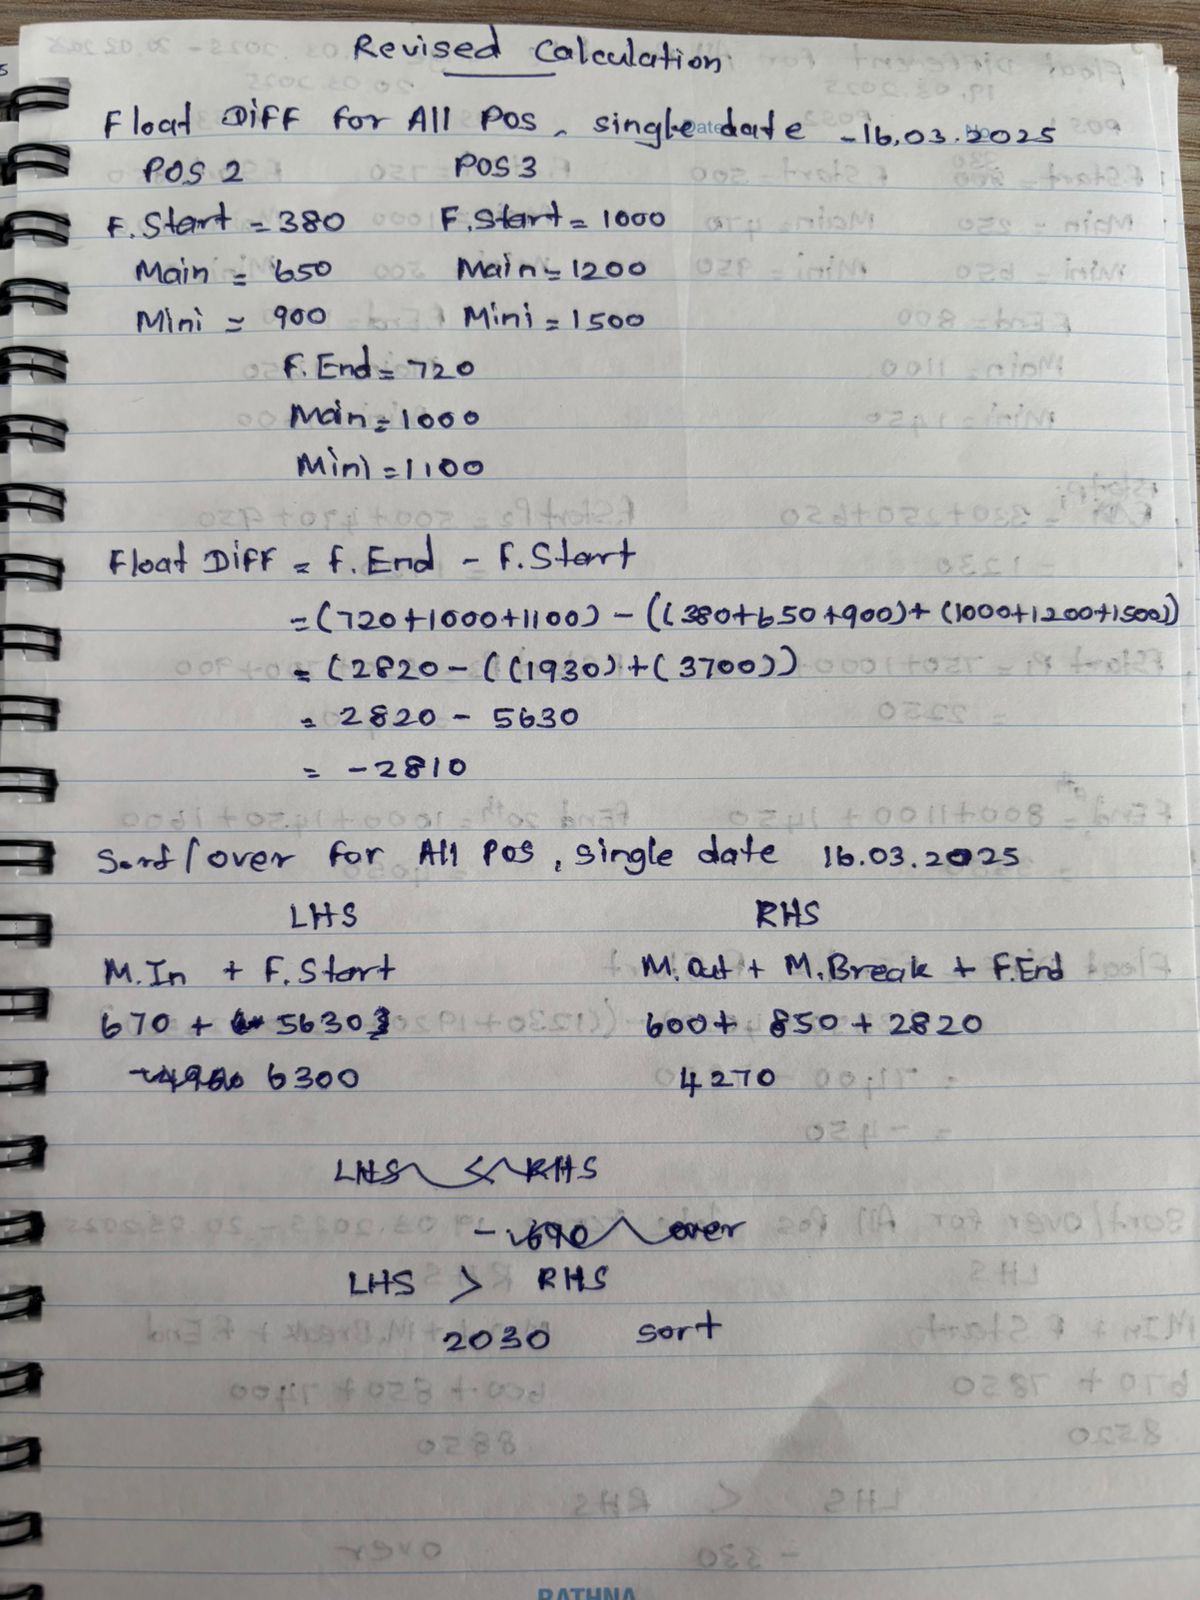 Revised Calculation
Float Diff for All Pos, single date - 16.03.2025
POS 2 POS 3
F. Start = 380 F. Start = 1000
Main = 650 Main = 1200
Mini = 900 Mini = 1500
F. End = 720
Main = 1000
Mini = 1100
Float Diff = F. End - F. Start
= (720+1000+1100) - ((380+650+900) + (1000+1200+1500))
= (2820 - ((1930) + (3700))
= 2820 - 5630
= -2810
Sort/over for All Pos, single date 16.03.2025
LHS RHS
M.In + F. Start M. Out + M. Break + F.End
670 + 5630 600 + 850 + 2820
6300 4270
LHS < RHS
- 1690 over
LHS > RHS
2030 sort
RATHNA